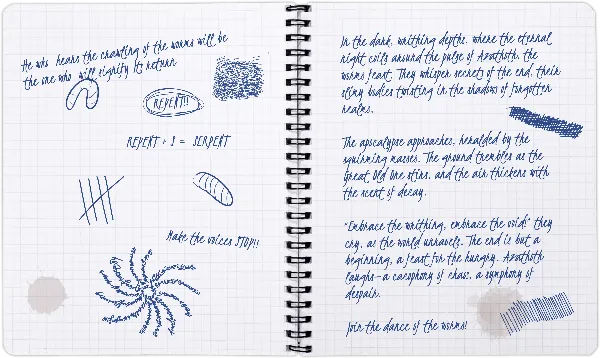 He who hears the crawling of the worms will be
the one who will signify Its return
REPENT!!
REPENT + S = SERPENT
Make the voices STOP!!
In the dark, writhing depths, where the eternal
night coils around the pulse of Azathoth, the
worms feast. They whisper secrets of the end, their
slimy bodies twisting in the shadows of forgotten
realms.
The apocalypse approaches, heralded by the
squirming masses. The ground trembles as the
Great Old One stirs, and the air thickens with
the scent of decay.
"Embrace the writhing, embrace the void!" they
cry, as the world unravels. The end is but a
beginning, a feast for the hungry. Azathoth
laughs—a cacophony of chaos, a symphony of
despair.
Join the dance of the worms!